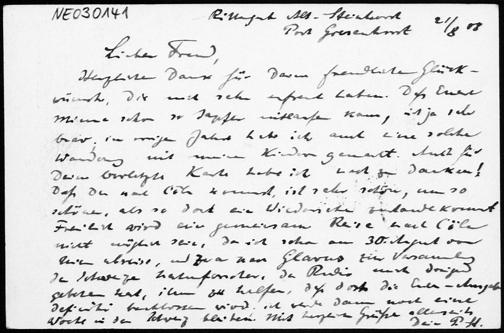 NE030141
Rittergut Alt-Steinhorst
Post Gresenhorst 21/8 08
Lieber Freund,
Herzlichen Dank für Deine freundlichen Glück-
wünsche, die mich sehr erfreut haben. Dass Euer
Minna schon so tapfer mitlaufen kann, ist ja sehr
brav; im vorigen Jahre habe ich auch eine solche
Wanderung mit meinen Kindern gemacht. Auch für
Deine vorletzte Karte habe ich noch zu danken!
Dass Du nach Cöln kommst, ist sehr schön, um so
schöner, als so doch ein Wiedersehen zustande kommt.
Freilich wird eine gemeinsame Reise nach Cöln
nicht möglich sein, da ich schon am 30. August von
hier abreise, und zwar nach Glarus zur Versammlung
der Schweizer Naturforscher, da Rudio mich dringend
gebeten hat, ihm zu helfen, dass dort die Euler-Ausgabe
definitiv beschlossen wird. Ich werde dann noch eine
Woche in der Schweiz bleiben. Mit herzlichen Grüßen allerseits
Dein P. St.